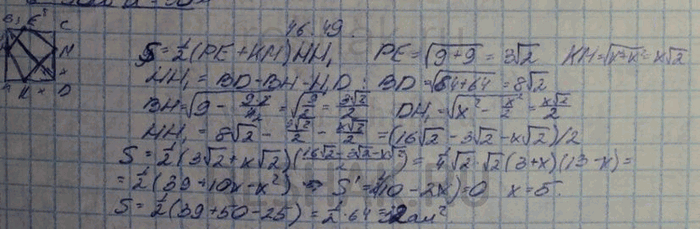 46.49.
B E C
S = 1/2 (PE + KM) HH₁ PE = √(9+9) = 3√2 KM = √(x²+x²) = x√2
HH₁ = BD - BH - H₁D : BD = √(64+64) = 8√2
BH = √(9 - 9·2/4) = √(9/2) = 3√2/2 DH₁ = √(x² - x²/2) = x√2/2
HH₁ = 8√2 - 3√2/2 - x√2/2 = (16√2 - 3√2 - x√2)/2
S = 1/2 (3√2 + x√2)((16√2 - 3√2 - x√2)/2) = 1/4 √2·√2 (3+x)(13-x) =
= 1/2 (39 + 10x - x²) S' = 1/2 (10 - 2x) = 0 x = 5.
S = 1/2 (39 + 50 - 25) = 1/2 · 64 = 32 см².
M
K D